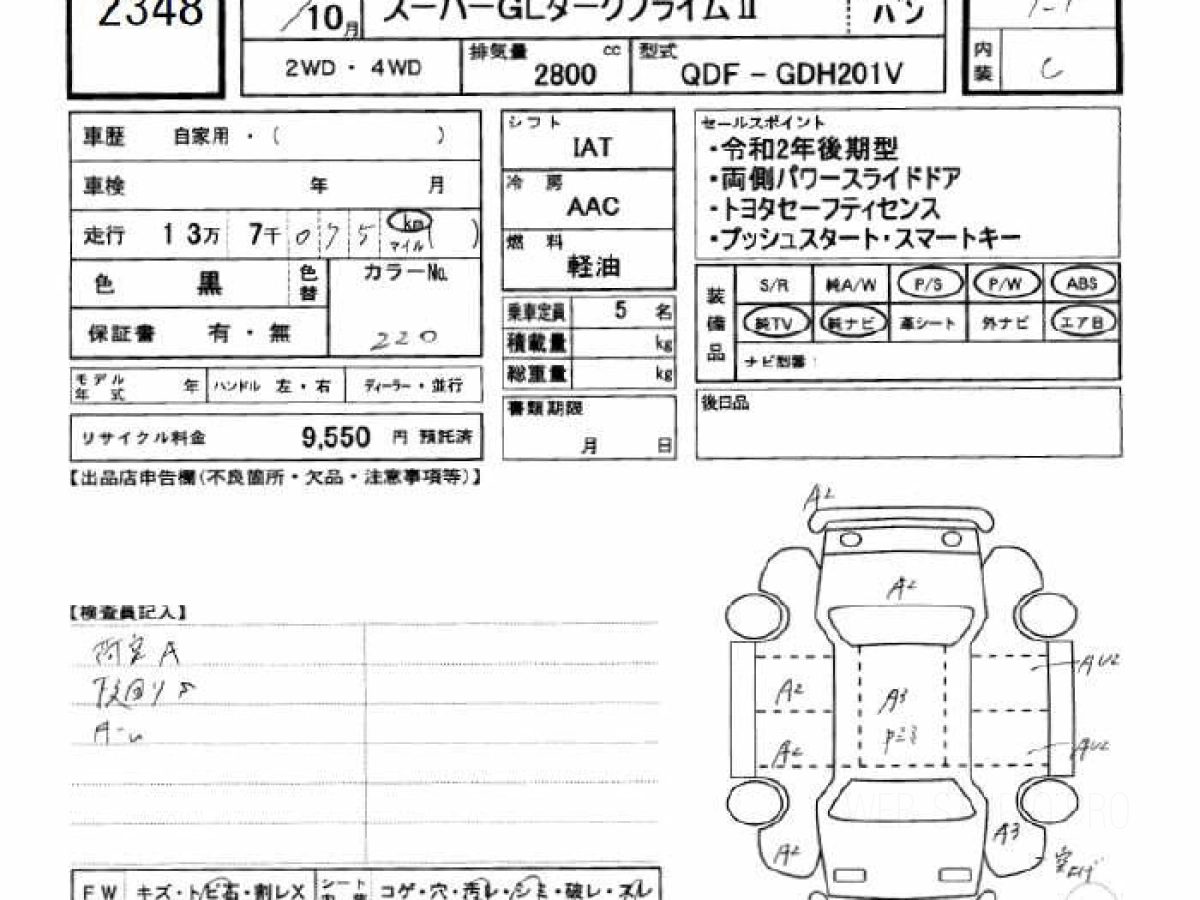 2348
10月
スーパーGLダークプライムⅡ
バン
2WD・4WD
排気量 cc 2800
型式 QDF-GDH201V
内装 C
車歴 自家用・( )
車検 年 月
走行 13万 7千 075 km マイル ( )
色 黒 色替
カラーNo. 220
保証書 有・無
モデル年式 年
ハンドル 左・右
ディーラー・並行
リサイクル料金 9,550 円 預託済
シフト IAT
冷房 AAC
燃料 軽油
乗車定員 5 名
積載量 kg
総重量 kg
書類期限 月 日
セールスポイント
・令和2年後期型
・両側パワースライドドア
・トヨタセーフティセンス
・プッシュスタート・スマートキー
装備品
S/R 純A/W P/S P/W ABS
純TV 純ナビ 革シート 外ナビ エアB
ナビ型番:
後日品
【出品店申告欄(不良箇所・欠品・注意事項等)】
【検査員記入】
下回りS
A2
A2
A2
A3
AU2
A2
AU2
A2
A3
WEB
FW キズ・トビ石・割レX
シート コゲ・穴・汚レ・シミ・破レ・スレ